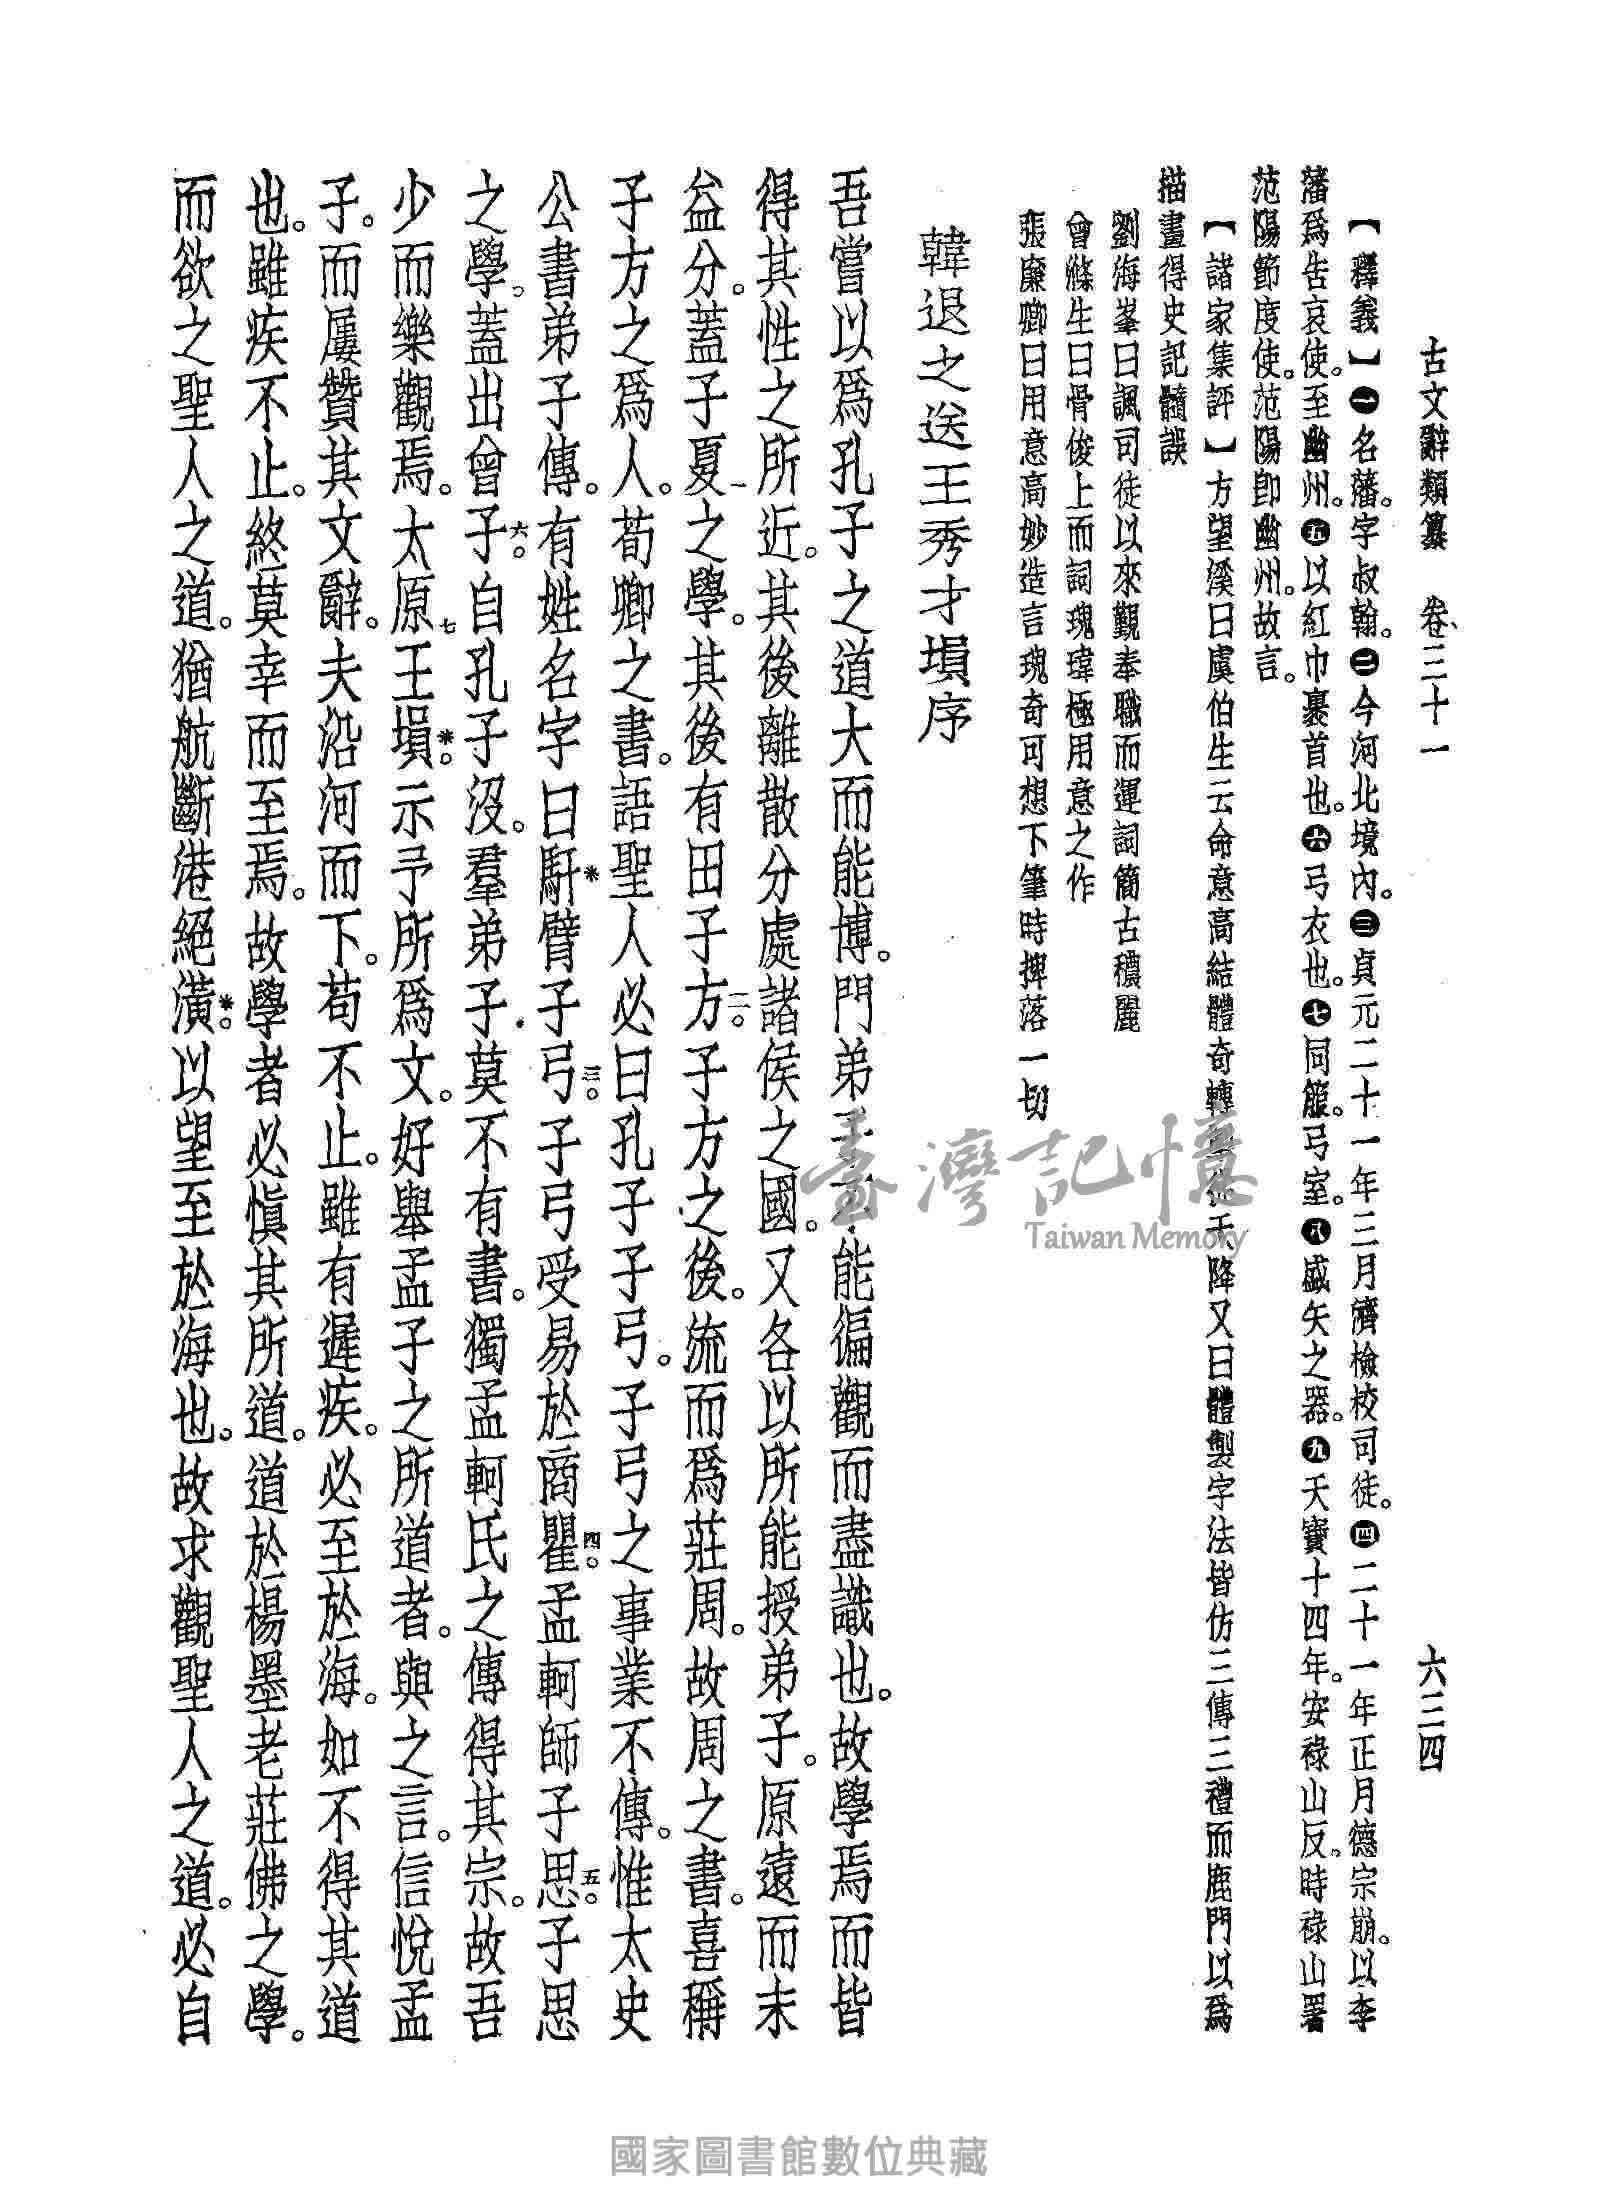 古文辭類纂　卷三十一　六三四
【釋義】㊀名藩。字叔翰。㊁今河北境內。㊂貞元二十一年三月濟檢校司徒。㊃二十一年正月德宗崩。以李
藩爲告哀使。至幽州。㊄以紅巾裹首也。㊅弓衣也。㊆同箙。弓室。㊇盛矢之器。㊈天寶十四年。安祿山反。時祿山署
范陽節度使。范陽卽幽州。故言。
【諸家集評】方望溪曰虞伯生云命意高結體奇轉 天降又曰體製字法皆仿三傳三禮而鹿門以爲
描畫得史記髓誤
劉海峯曰諷司徒以來覲奉職而運詞簡古穠麗
曾滌生曰骨俊上而詞瑰瑋極用意之作
張廉卿曰用意高妙造言瑰奇可想下筆時揮落一切
韓退之送王秀才塤序
吾嘗以爲孔子之道大而能博。門弟子 能徧觀而盡識也。故學焉而皆
得其性之所近。其後離散分處諸侯之國。又各以所能授弟子。原遠而末
益分。蓋子夏一之學。其後有田子方二。子方之後。流而爲莊周。故周之書。喜稱
子方之爲人。荀卿之書。語聖人必曰孔子子弓。子弓之事業不傳。惟太史
公書弟子傳。有姓名字曰馯*臂子弓三。子弓受易於商瞿四。孟軻師子思五。子思
之學。蓋出曾子六。自孔子沒。羣弟子。莫不有書。獨孟軻氏之傳得其宗。故吾
少而樂觀焉。太原七王塤*。示予所爲文。好舉孟子之所道者。與之言。信悅孟
子。而屢贊其文辭。夫沿河而下。苟不止。雖有遲疾。必至於海。如不得其道
也。雖疾不止。終莫幸而至焉。故學者必愼其所道。道於楊墨老莊佛之學。
而欲之聖人之道。猶航斷港絕潢*。以望至於海也。故求觀聖人之道。必自
臺灣記憶
Taiwan Memory
國家圖書館數位典藏